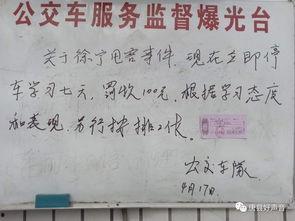 公交车服务监督爆光台
关于徐宁甩客事件.现在立即停
车学习七天,罚款100元.根据学习态度
和表现.另行安排工作.
公交车队
9月17日.
唐县好声音